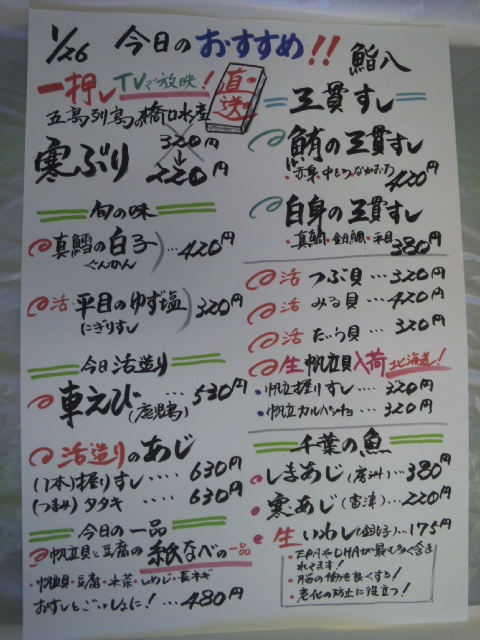 1/26 今日のおすすめ!! 鮨八
一押し TVで放映! 直送
五島列島の橋口水産
寒ぶり 320円→220円
旬の味
真鱈の白子…420円
ぐんかん
活 平目のゆず塩 320円
にぎりすし
今日活造り
車えび(鹿児島)…530円
活造りのあじ
(1本)握りすし……630円
(つまみ)タタキ……630円
今日の一品
帆立貝と豆腐の紙なべの一品
・帆立貝・豆腐・水菜・しめじ・長ネギ
おすしとごいっしょに!…480円
三貫すし
鮪の三貫すし
・赤身・中とろ・なかおち 420円
白身の三貫すし
・真鯛・金目鯛・平目 380円
活 つぶ貝…320円
活 みる貝…420円
活 たいら貝…320円
生帆立貝入荷 北海道!
・帆立握りすし…320円
・帆立カルパッチョ…320円
千葉の魚
しまあじ(房州)…380円
寒あじ(富津)…220円
生いわし(銚子)…175円
・EPAやDHAが最も多く含まれてます!
・脳の働きを良くする!
・老化の防止に役立つ!